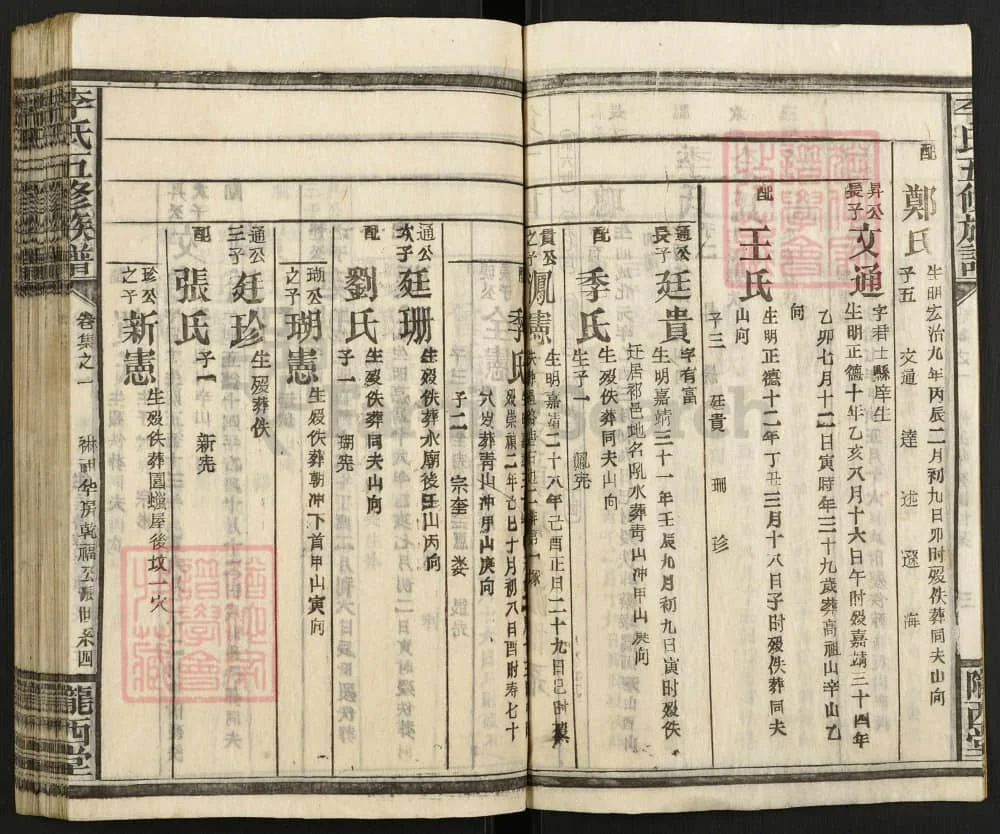 李氏五修族譜
隴西堂
配 鄭氏
生明宏治九年丙辰二月初九日卯时歿佚葬同夫山向
子五 文通 達 述 遜 海
昇公長子 文通
字君士縣庠生
生明正德十年乙亥八月十六日午时歿嘉靖三十四年
乙卯七月十二日寅時年三十九歲葬髙祖山辛山乙
向
配 王氏
生明正德十二年丁丑三月十八日子时歿佚葬同夫
山向
子三 廷貴 珊 珍
通公長子 廷貴
字有富
生明嘉靖三十一年壬辰九月初九日寅时歿佚
迁居祁邑地名吼水葬靑山冲甲山庚向
配 季氏
生歿佚葬同夫山向
生子一 鳳宪
貴公之子 鳳憲
生明嘉靖二十八年己酉正月二十九日巳时
配 季氏
歿崇禎二年己巳十月初八日酉时寿七十
六岁葬靑山冲甲山庚向
子二 宗奎 娄
通公次子 廷珊
生歿佚葬水廟後壬山丙向
配 劉氏
生歿佚葬同夫山向
子一 瑚宪
珊公之子 瑚憲
生歿佚葬朝冲下首甲山寅向
通公三子 廷珍
生歿葬佚
配 張氏
子一 新宪
珍公之子 新憲
生歿佚葬園蠟屋後坟一穴
李氏五修族譜
卷集之一
華房乾福公派世系四
隴西堂